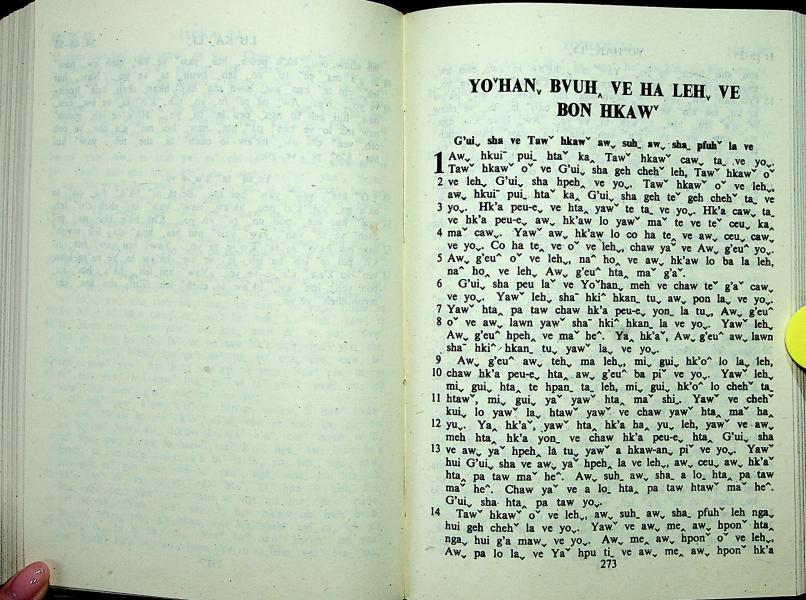 YOˇHANˬ BVUHꞈ VE HA LEHˬ VE
BON HKAWˇ
G'uiˬ sha ve Tawˇ hkawˇ awˬ suhˍ awˬ shaˍ pfuhˇ la ve
1 Awˬ hkuiˉ puiˍ htaˇ kaꞈ Tawˇ hkawˇ cawˬ taˍ ve yoˬ.
Tawˇ hkawˇ oˇ ve G'uiˬ sha geh chehˇ leh, Tawˇ hkawˇ oˇ
2 ve lehˬ G'uiˬ sha hpehꞈ ve yoˬ. Tawˇ hkawˇ oˇ ve lehˬ,
awˬ hkuiˉ puiˍ htaˇ kaꞈ G'uiˬ sha geh teˇ geh chehˇ taˍ ve
3 yoˬ. Hk'a peu-e ve htaꞈ yawˇ te taˍ ve yoˬ. Hk'a cawˬ taˍ
ve hk'a peu-eˬ awˬ hk'aw lo yawˇ maˇ te ve teˇ ceuˬ kaꞈ
4 maˇ cawˬ. Yawˇ awˬ hk'aw lo co ha teꞈ ve awˬ ceuˬ cawˬ
ve yoˬ. Co ha teꞈ ve oˇ ve lehˬ, chaw yaˇ ve Awˬ g'euˆ yoˬ.
5 Awˬ g'euˆ oˇ ve lehˬ, naˆ hoꞈ ve awˬ hk'aw lo ba la leh,
naˆ hoꞈ ve lehˬ Awˬ g'euˆ htaꞈ maˇ g'aˇ.
6 G'uiˬ sha peu laˇ ve Yoˇhanˬ meh ve chaw teˇ g'aˇ cawˬ
ve yoˬ. Yawˇ lehˬ shaˉ hkiˆ hkanˍ tuˬ awˬ pon laˬ ve yoˬ.
7 Yawˇ htaꞈ pa taw chaw hk'a peu-eˬ yonˍ la tuˬ, Awˬ g'euˆ
8 oˇ ve awˬ lawn yawˇ shaˉ hkiˆ hkanˍ la ve yoˬ. Yawˇ lehˬ
Awˬ g'euˆ hpehꞈ ve maˇ heˆ. Yaꞈ hk'aˇ, Awˬ g'euˆ awˬ lawn
shaˉ hkiˆ hkanˍ tuˬ yawˇ laˬ ve yoˬ.
9 Awˬ g'euˆ awˬ tehˬ ma lehˬ, miˬ guiˬ hk'oˆ lo laˬ leh,
10 chaw hk'a peu-eˬ htaꞈ awˬ g'euˆ ba piˇ ve yoˬ. Yawˇ lehˬ
miˬ guiˬ htaꞈ te hpanˍ taˍ leh, miˬ guiˬ hk'oˆ lo chehˇ taˍ
11 htawˇ, miˬ guiˬ yaˇ yawˇ htaꞈ maˇ shiˍ. Yawˇ ve chehˇ
kuiˬ lo yawˇ laˬ htawˇ yawˇ ve chaw yawˇ htaꞈ maˇ haꞈ
12 yuˬ. Yaꞈ hk'aˇ, yawˇ htaꞈ hk'a haꞈ yuˬ leh, yawˇ ve awˬ
meh htaꞈ hk'a yonˍ ve chaw hk'a peu-eˬ htaꞈ G'uiˬ sha
13 ve awˬ yaˇ hpehꞈ la tuˬ yawˇ a hkaw-anˬ piˇ ve yoˬ. Yawˇ
hui G'uiˬ sha ve awˬ yaˇ hpehꞈ la ve lehˬ, awˬ ceuˬ awˬ hk'aˇ
htaꞈ pa taw maˇ heˆ. Awˬ suhˍ awˬ shaˍ a loˍ htaꞈ pa taw
maˇ heˆ. Chaw yaˇ ve a loˍ htaꞈ pa taw htawˇ maˇ heˆ.
G'uiˬ sha htaꞈ pa taw yoˬ.
14 Tawˇ hkawˇ oˇ ve lehˬ, awˬ suhˍ awˬ shaˍ pfuhˇ leh ngaˬ
hui geh chehˇ la ve yoˬ. Yawˇ ve awˬ meꞈ awˬ hponˇ htaꞈ
ngaˬ hui g'a mawˬ ve yoˬ. Awˬ meꞈ awˬ hponˇ oˇ ve lehˬ,
Awˬ pa lo laˬ ve Yaˇ hpu tiˍ ve awˬ meꞈ awˬ hponˇ hk'a
273